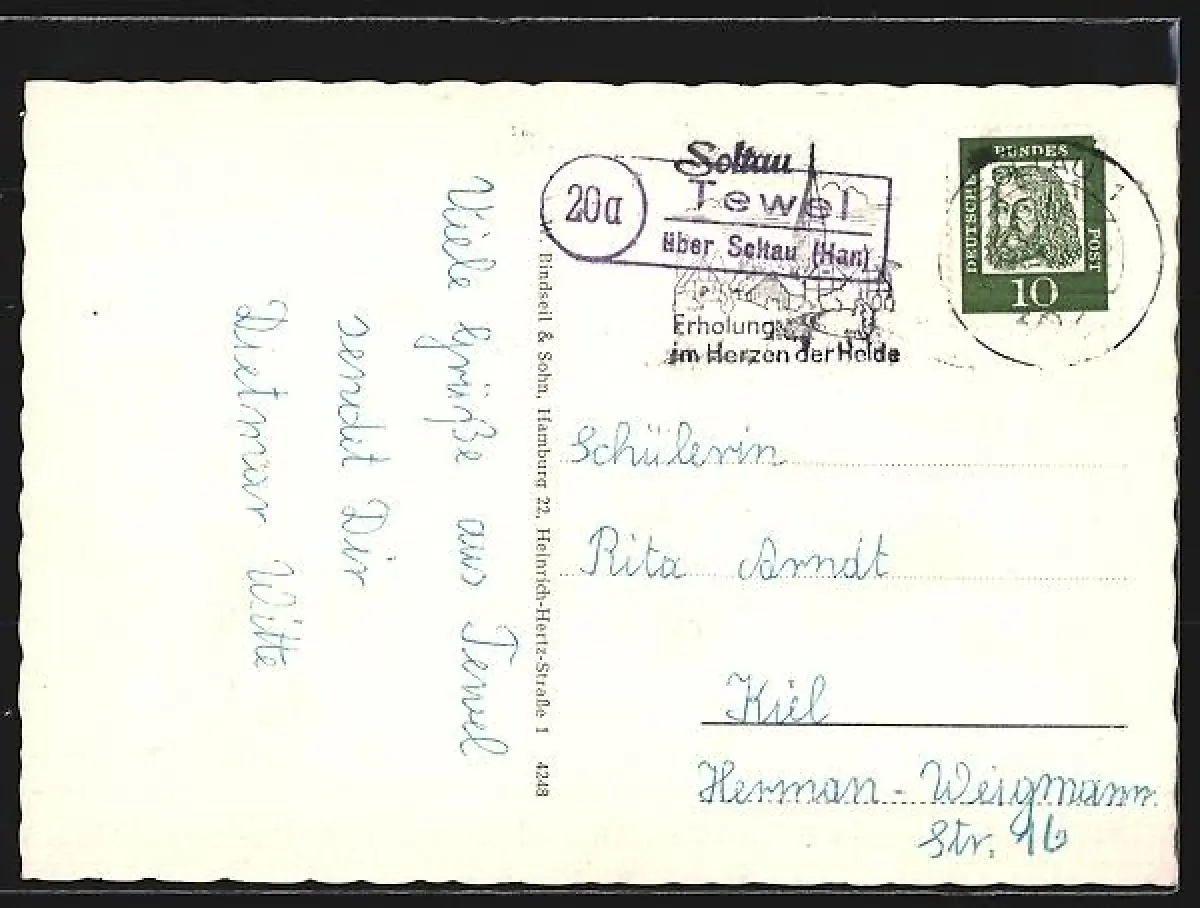 Viele Grüße aus Tewel
sendet Dir
Dietmar Witte
Bindseil & Sohn, Hamburg 22, Heinrich-Hertz-Straße 1 4248
20a
Soltau
Tewel
über Soltau (Han)
Erholung
im Herzen der Heide
DEUTSCHE
BUNDES
POST
10
Schülerin
Rita Arndt
Kiel
Herman-Weigmann
Str. 16